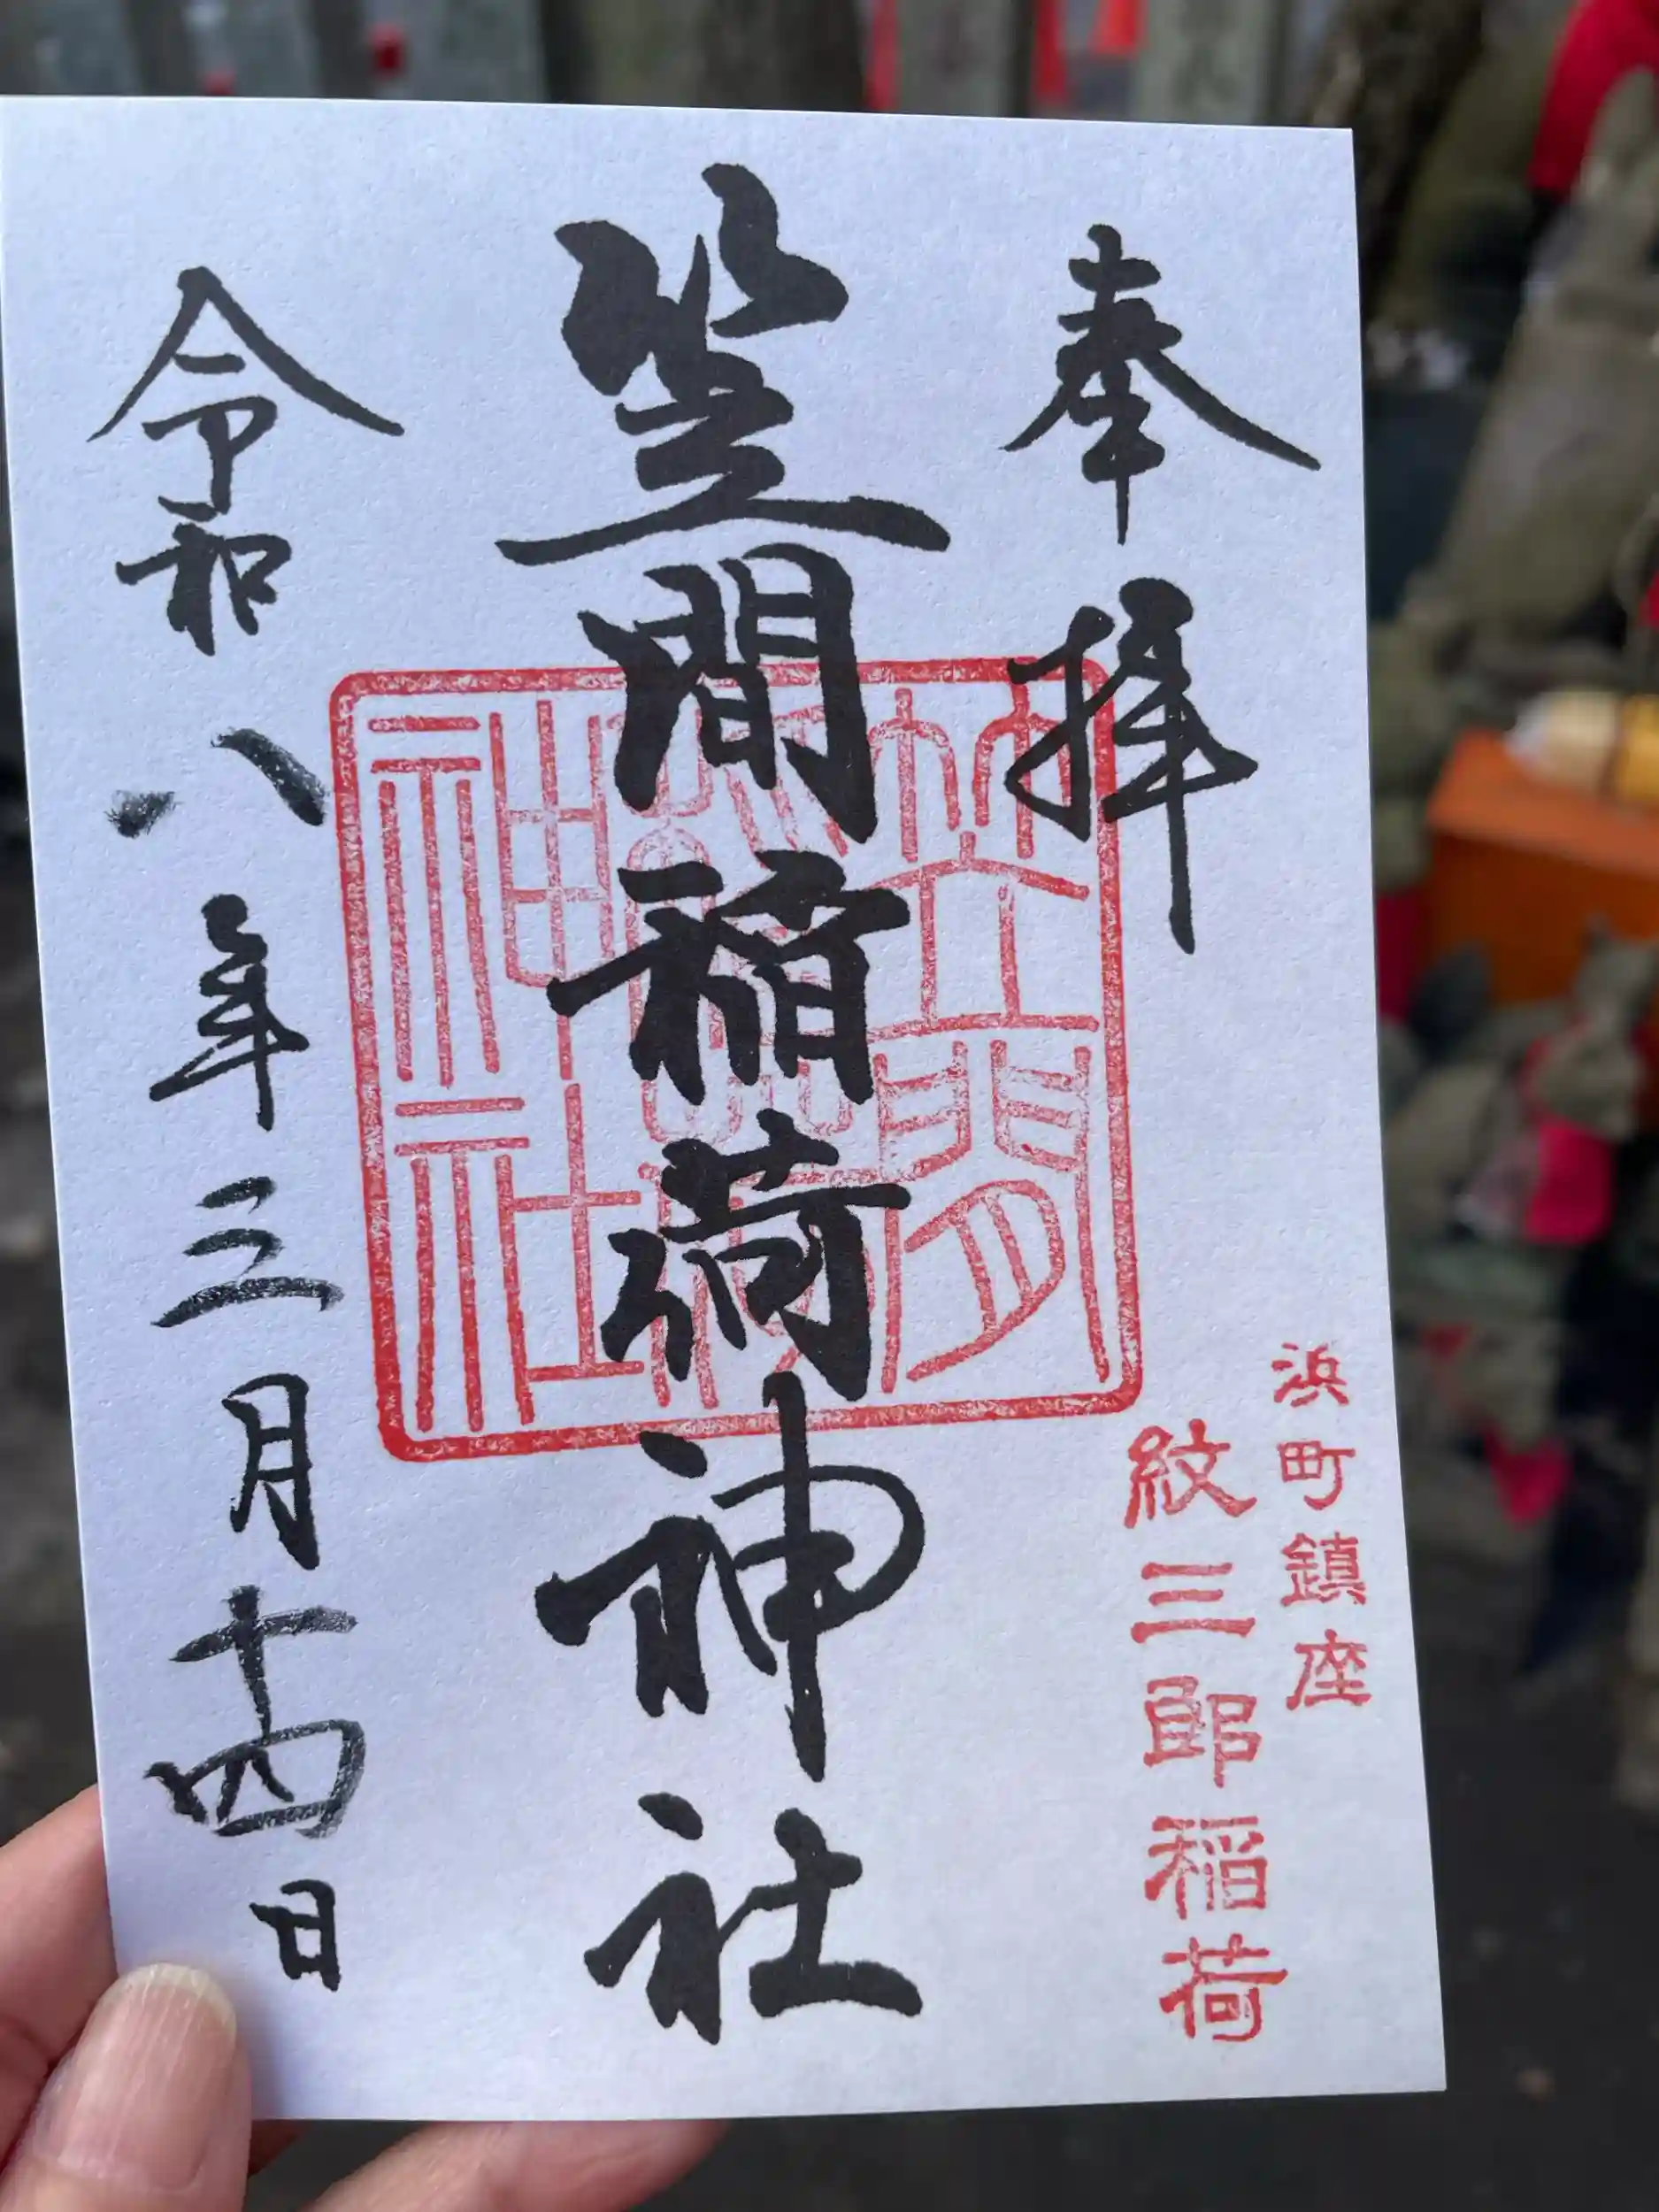 奉拝
浜町鎮座
紋三郎稲荷
笠間稲荷神社
笠間
稲荷
神社
令和八年三月十四日